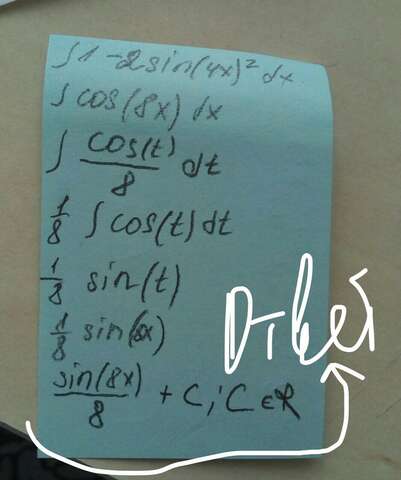 ∫1-2sin(4x)² dx
∫cos(8x) dx
∫ cos(t)/8 dt
1/8 ∫ cos(t) dt
1/8 sin(t)
1/8 sin(8x)
sin(8x)/8 + C; C ∈ R